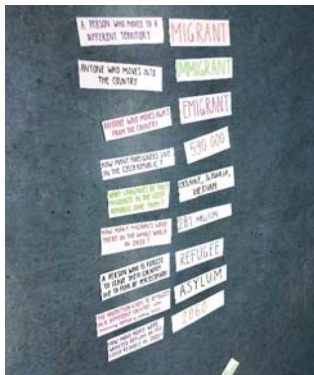 A PERSON WHO MOVES TO A
DIFFERENT TERRITORY
MIGRANT
ANYONE WHO MOVES INTO
THE COUNTRY
IMMIGRANT
ANYONE WHO MOVES AWAY
FROM THE COUNTRY
EMIGRANT
HOW MANY FOREIGNERS LIVE
IN THE CZECH REPUBLIC?
590 000
WHAT COUNTRIES DO MOST
MIGRANTS IN THE CZECH
REPUBLIC COME FROM?
UKRAINE, SLOVAKIA,
VIETNAM
HOW MANY MIGRANTS WERE
THERE IN THE WORLD
IN 2020?
281 MILLION
A PERSON WHO IS FORCED
TO LEAVE THEIR COUNTRY
DUE TO FEAR OF PERSECUTION
REFUGEE
THE PROTECTION GIVEN TO REFUGEES
IN A DIFFERENT COUNTRY
ASYLUM
HOW MANY PEOPLE WERE
GRANTED ASYLUM IN THE
CZECH REPUBLIC IN
2060